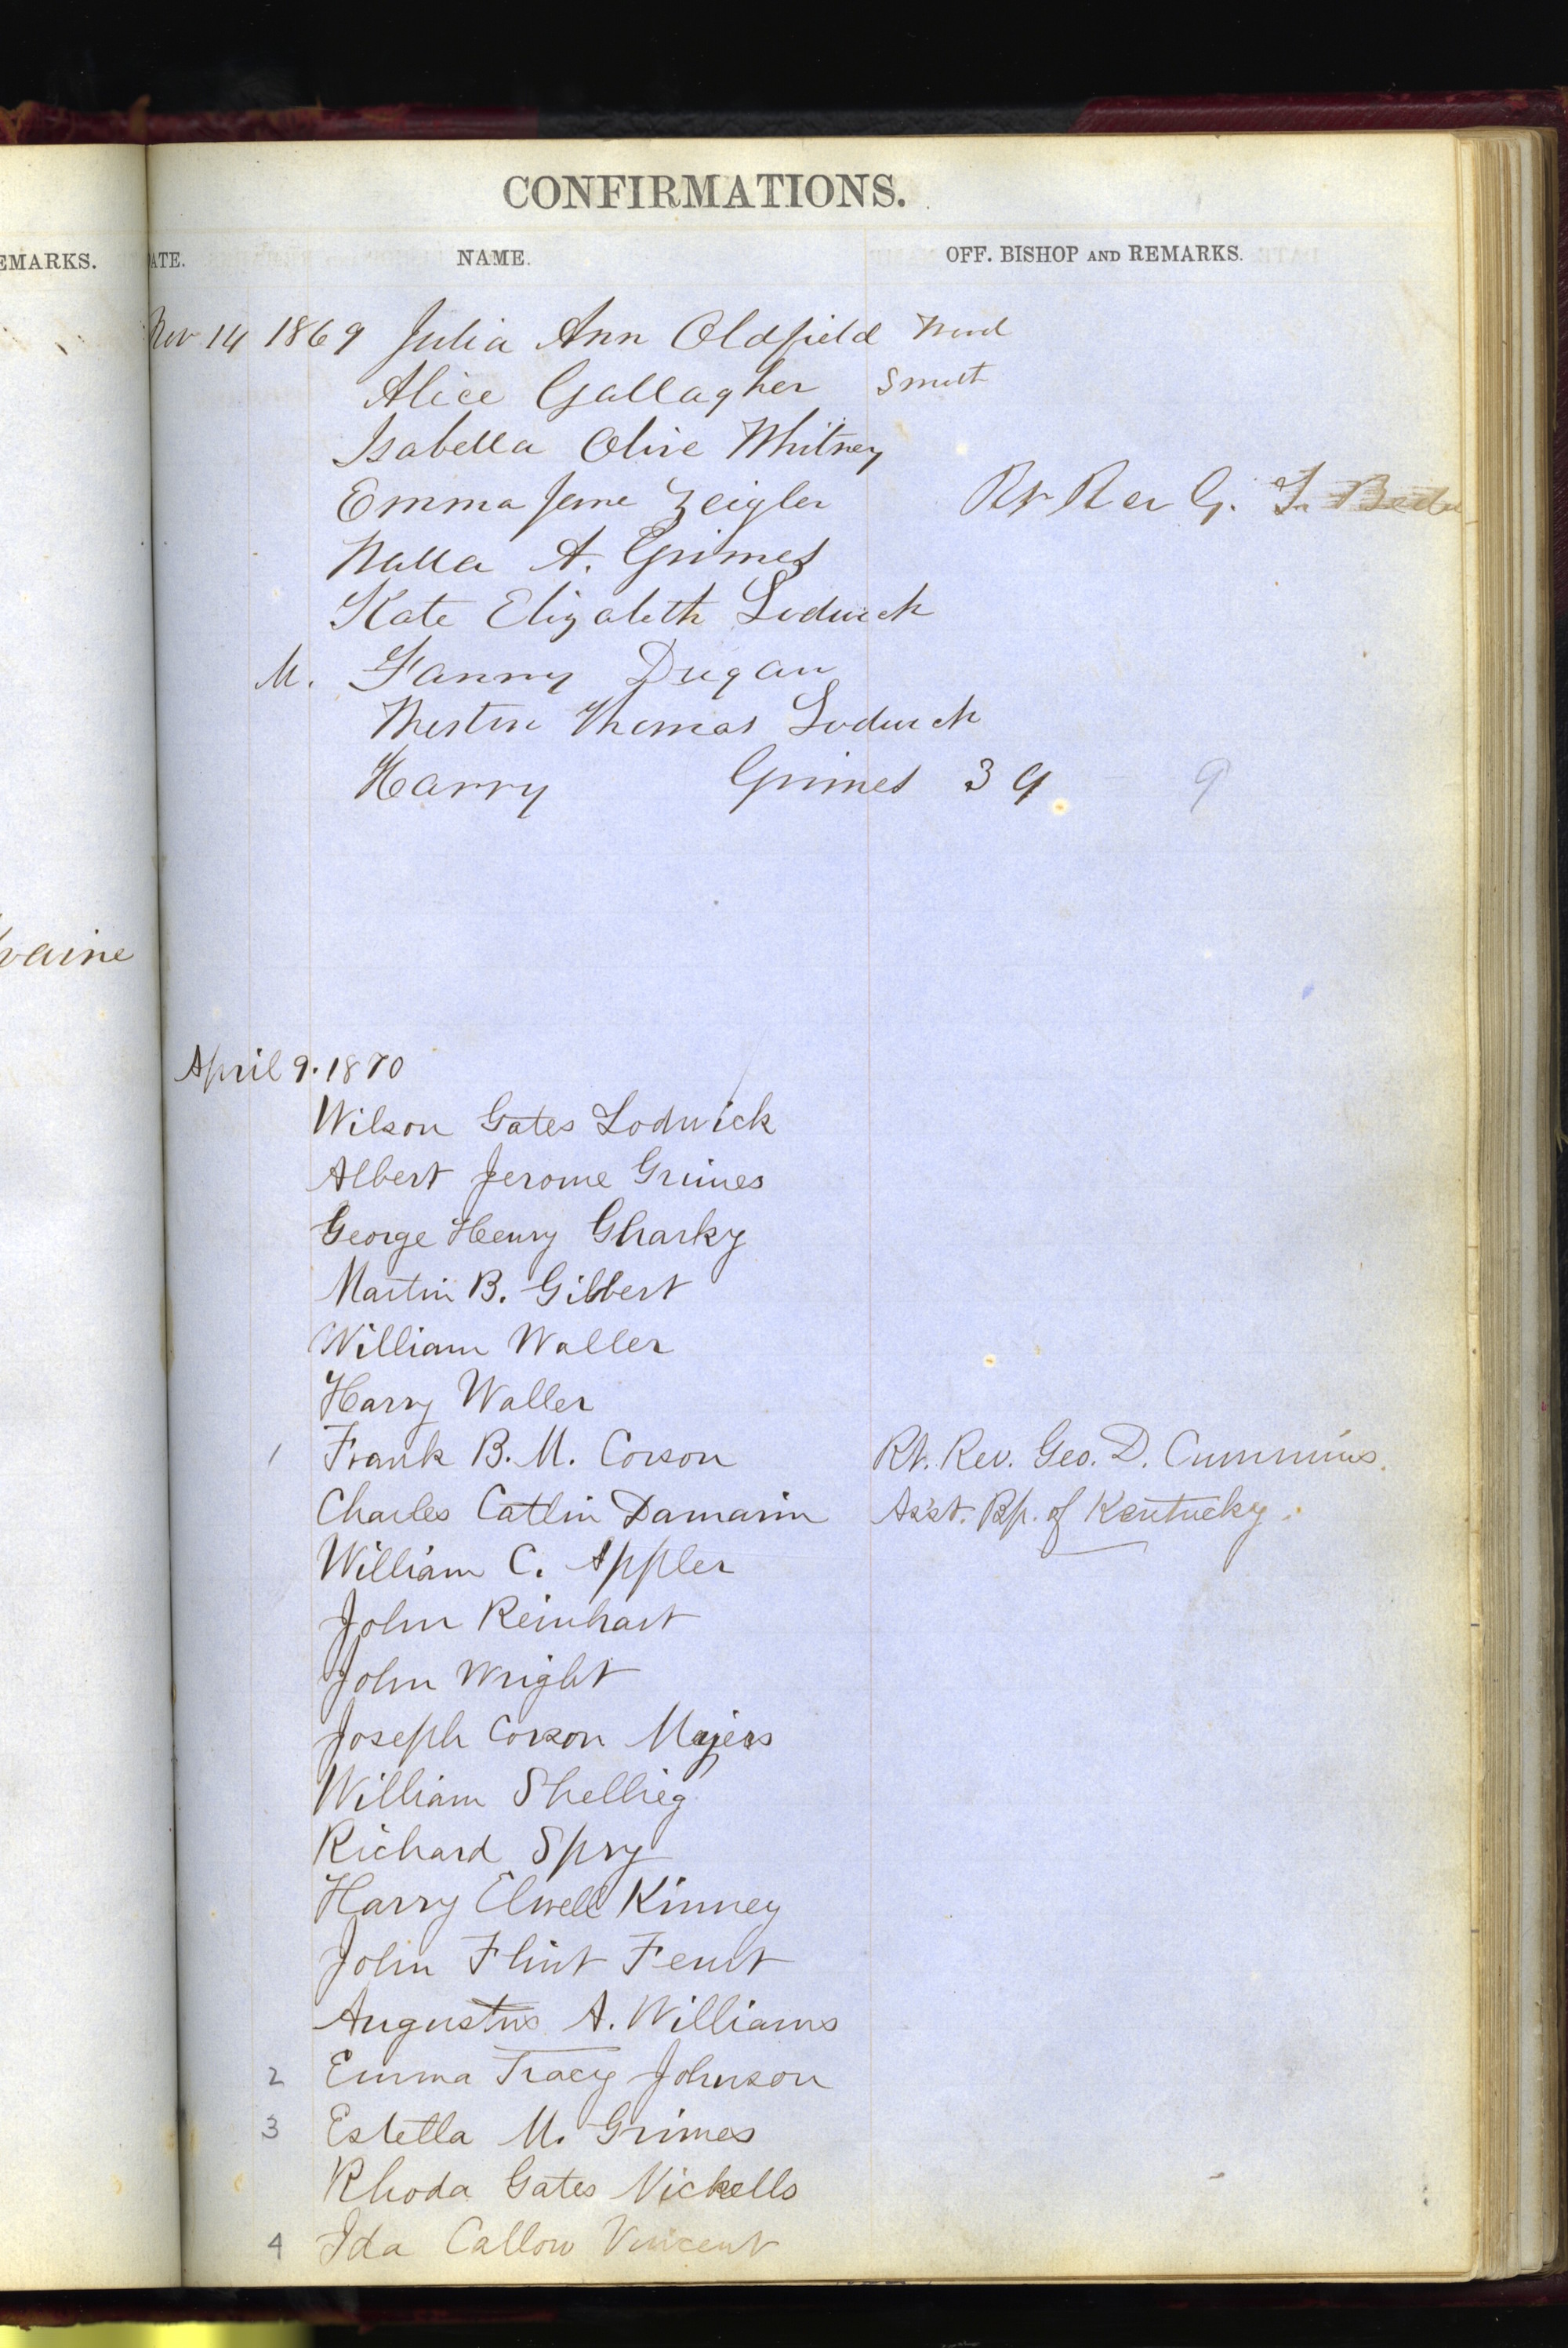 CONFIRMATIONS.
EMARKS. ATE. NAME. OFF. BISHOP AND REMARKS.
Nov 14 1869 Julia Ann Oldfield
Alice Gallagher
Isabella Olive Whitney
Emma Jane Zeigler Rt Rev G. T.
A. Grimes
Kate Elizabeth Lodwick
M. Fanny Dugan
Thomas Lodwick
Harry Grimes 39 9
vaine
April 9. 1870
Wilson Gates Lodwick
Albert Jerome Grimes
George Henry Gharky
Martin B. Gilbert
William Waller
Harry Waller
1 Frank B. M. Corson Rt. Rev. Geo. D. Cummins.
Charles Catlin Damarin Asst. Bp. of Kentucky.
William C. Appler
John Reinhart
John Wright
Joseph Corson Myers
William Shellieg
Richard Spry
Harry Elwell Kinney
John Flint
Augustus A. Williams
2 Emma Tracy Johnson
3 Estella M. Grimes
Rhoda Gates Nickells
4 Ida Callow Vincent